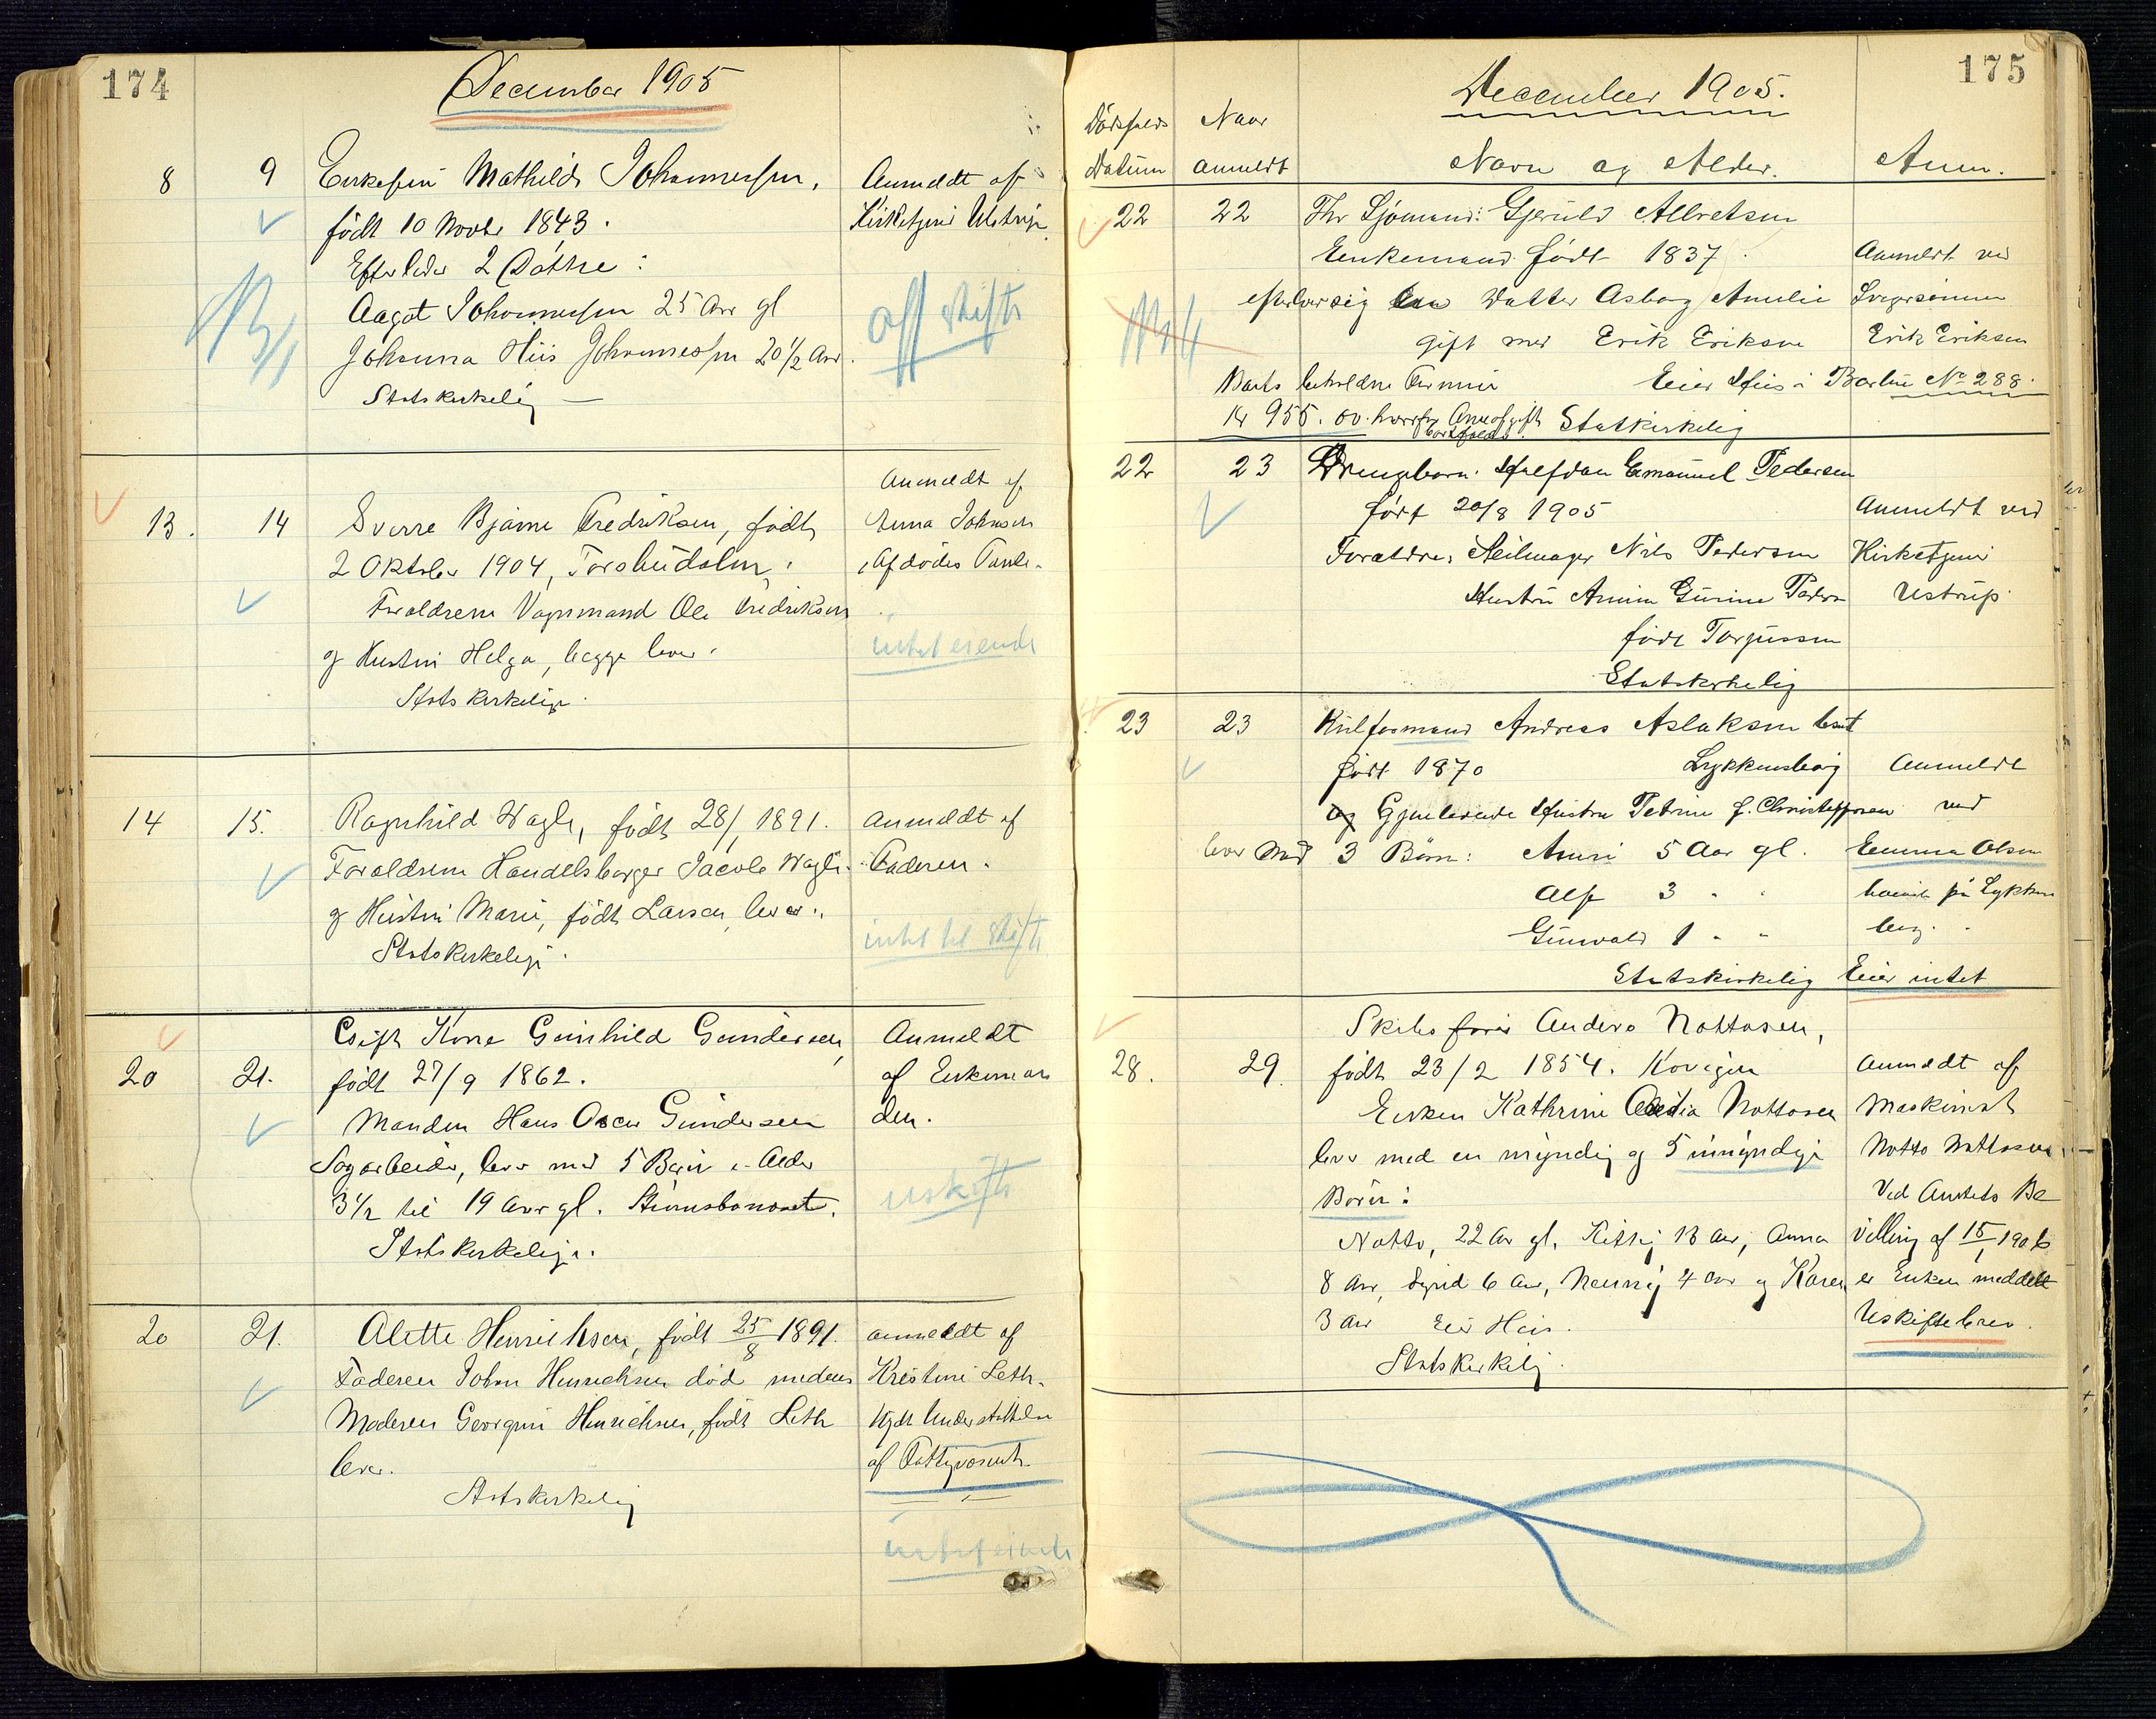 174
December 1905
8 9 Enkefru Mathilde Johannessen, Anmeldt af
født 10 Novbr 1843. Kirketjener Ustrup
Efterlader 2 Døttre:
Aagot Johannessen 25 Aar gl off skifte
Johanna Hiis Johannessen 20 1/2 Aar.
Statskirkelig —
Anmeldt af
13. 14 Sverre Bjarne Fredriksen, født Anna Johnsen
2 Oktober 1904, Afdødes Tante.
Forældrene Vognmand Ole Fredriksen
og Hustru Helga, begge lever. intet eiende
Statskirkelige.
14 15. Ragnhild Wagle, født 28/1 1891. Anmeldt af
Forældrene Handelsborger Jacob Wagle Faderen.
og Hustru Marie, født Larsen, lever.
Statskirkelige. intet til Skifte
Gift Kone Gunhild Gundersen, Anmeldt
20 21. født 27/9 1862. af Enkeman
Manden Hans Oscar Gundersen den.
Sagarbeider, lever med 5 Børn i Alder
3 1/2 til 19 Aar gl. uskifte
Statskirkelige.
20 21. Alette Henrichsen, født 25/8 1891. anmeldt af
Faderen Johan Henrichsen død medens Kristine Leth.
Moderen Georgine Henrichsen, født Leth Nydt Understøttelse
lever. af Fattigvæsenet.
Statskirkelig
intet eiende
175
December 1905.
Dødsfalds Naar
Datum anmeldt Navn og Alder. Anm.
22 22 Fhv Sjømand: Gjeruld Albretsen
Enkemand født 1837. Anmeldt ved
efterlader sig en Datter Asborg Amalie Svigersønnen
gift med Erik Eriksen Erik Eriksen
Boets beholdne Formue Eier Huus i Barbu No 288.
Kr 955.00 hvorfor Arveafgift Statskirkelig
bortfalder.
22 23 Drengebarn: Halfdan Emanuel Pedersen
født 20/8 1905 Anmeldt ved
Forældre: Seilmager Nils Pedersen Kirketjener
Hustru Gurine Peders Ustrup
født Torjussen
Statskirkelig
23 23 Kulfosmand Andreas Aslaksen
født 1870 Lykkensborg Anmeldt
og Gjenlevende Hustru Petrine f. Christoffersen ved
lever med 3 Børn: 5 Aar gl. Emma Olsen
Alf 3 " " på Lykkens
Gunvald 1 " " berg.
Statskirkelig Eier intet
Skibsfører Anders Nottosen,
28. 29. født 23/2 1854. Kovigen Anmeldt af
Enken Kathrine Nottosen Maskinist
lever med en myndig og 5 umyndige Notto Nottosen
Børn: Ved Amtets Be
Notto, 22 Aar gl, 13 Aar, Anna villing af 15/1 1906
8 Aar, Sigrid 6 Aar, Henny 4 Aar og Karen er Enken meddelt
3 Aar Eier Huus. Uskiftebrev.
Statskirkelig.